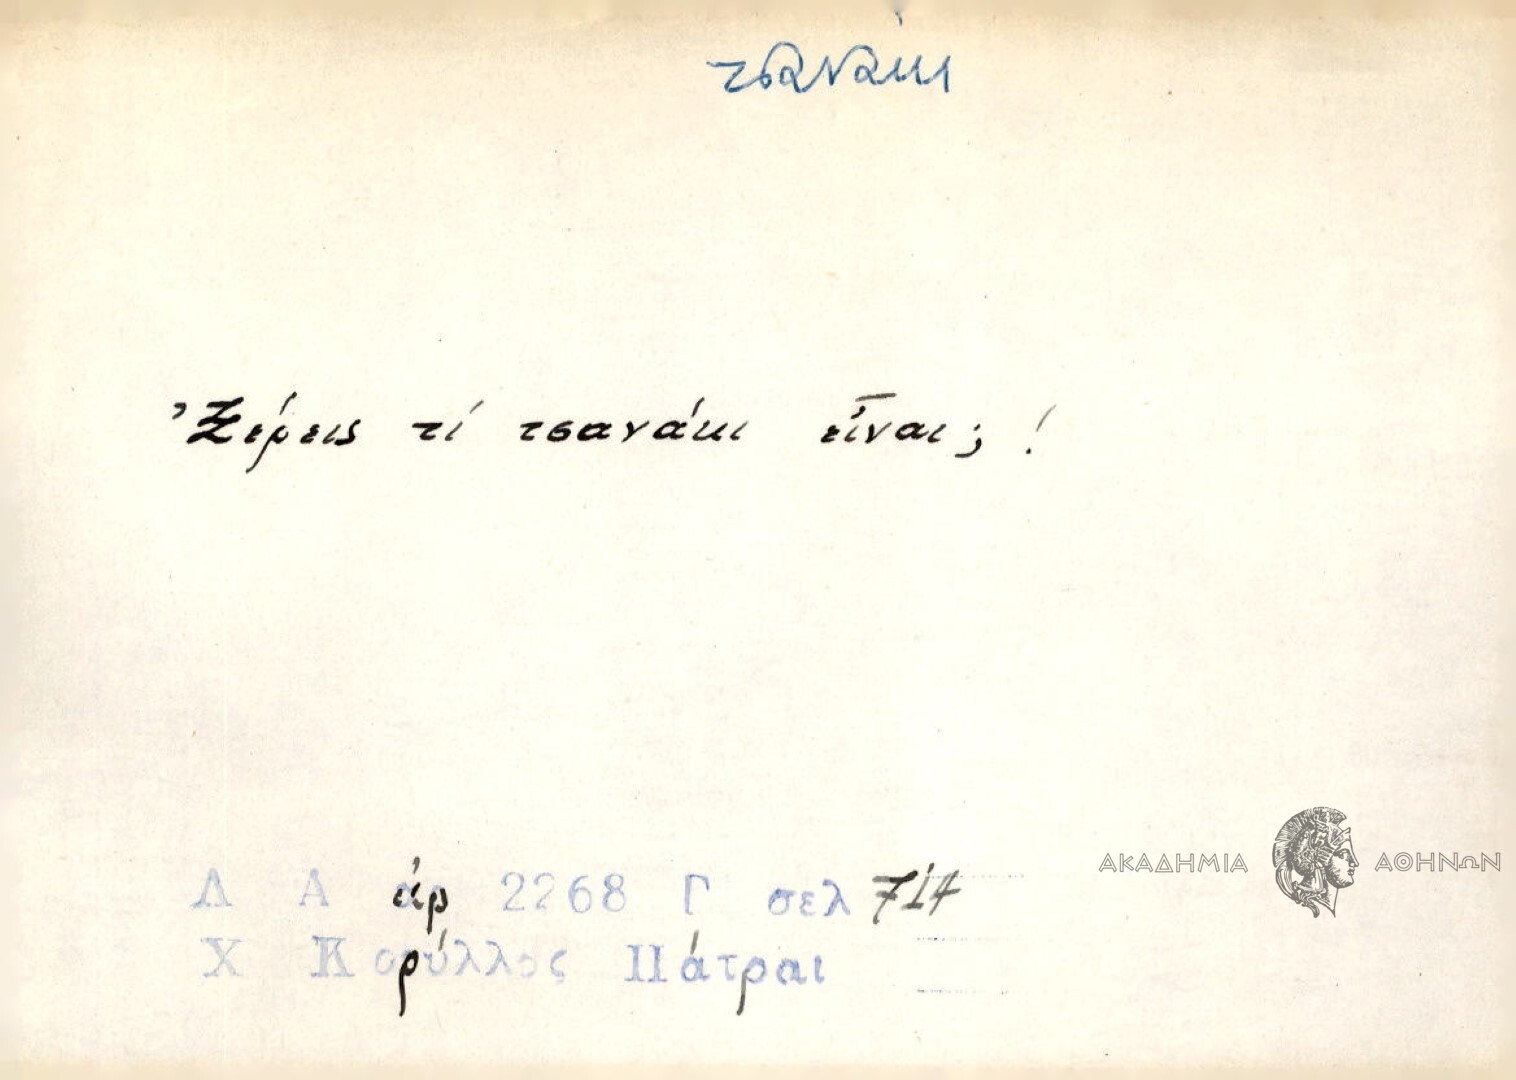 τσανάκι
Ξέρεις τί τσανάκι εἶναι; !
Λ Α ἀρ 2268 Γ σελ 714
Χ Κορύλλος Πάτραι
ΑΚΑΔΗΜΙΑ ΑΘΗΝΩΝ